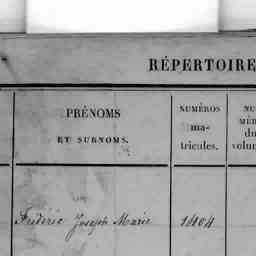 RÉPERTOIRE
PRÉNOMS
ET SURNOMS.
NUMÉROS
ma-
tricules.
NU
MÉR
du
volum
Frédéric Joseph Marie
1404